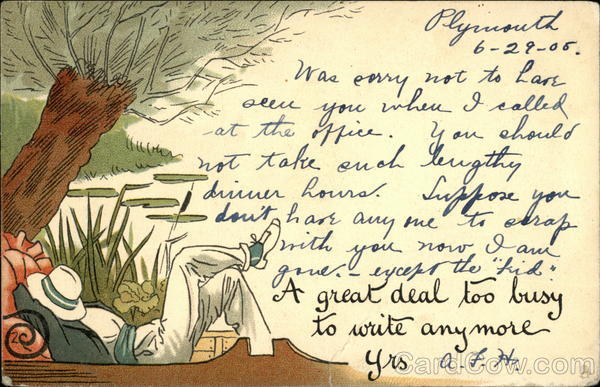 Plymouth
6-29-05.
Was sorry not to have
seen you when I called
at the office. You should
not take such lengthy
dinner hours. Suppose you
don't have any one to scrap
with you now I am
gone. - except the "kid."
A great deal too busy
to write anymore
yrs A. F. H.
CardCow.com